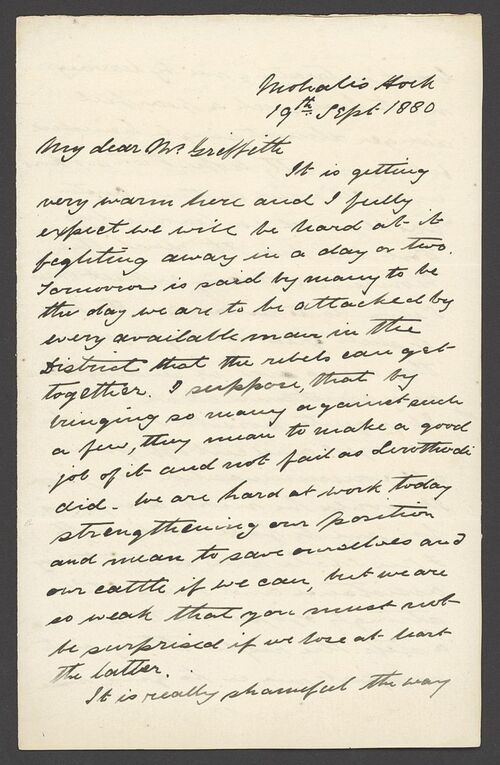 Mohalis Hoek
19th Sept 1880
My dear Mr Griffith
It is getting
very warm here and I fully
expect we will be hard at it
fighting away in a day or two.
Tomorrow is said by many to be
the day we are to be attacked by
every available man in the
District that the rebels can get
together. I suppose, that by
bringing so many against such
a few, they mean to make a good
job of it and not fail as Lerothodi
did. We are hard at work today
strengthening our position
and mean to save ourselves and
our cattle if we can, but we are
so weak that you must not
be surprised if we lose at least
the latter.
It is really shameful the way